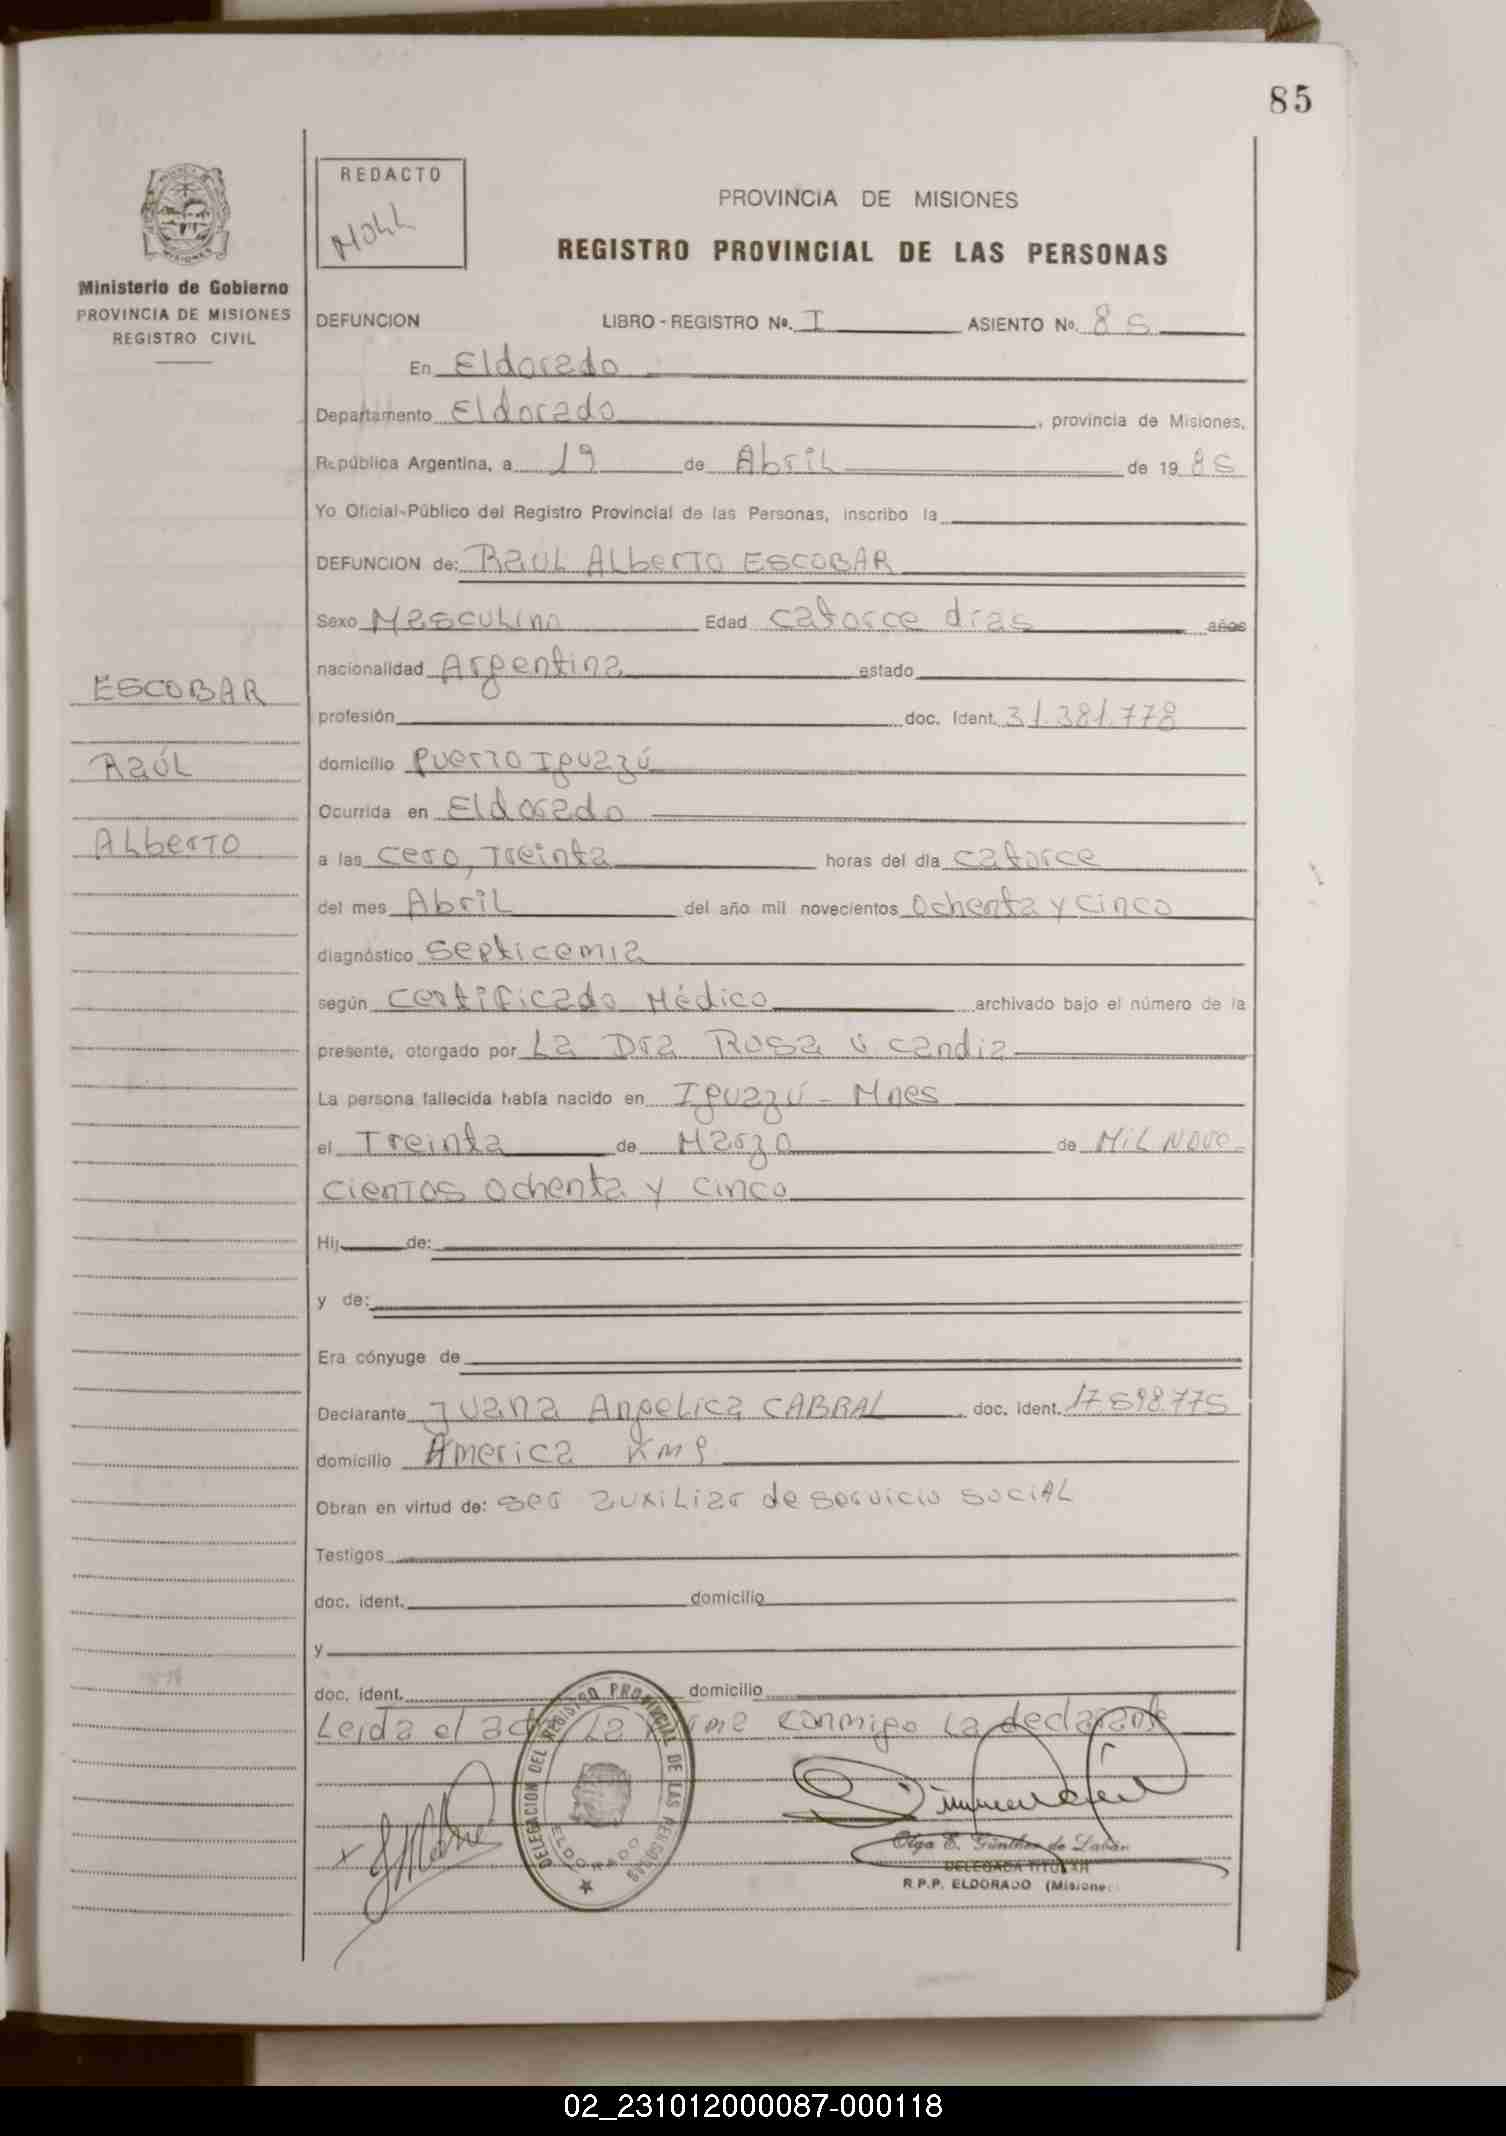 85
REDACTO
MOLL
PROVINCIA DE MISIONES
REGISTRO PROVINCIAL DE LAS PERSONAS
MISIONES
Ministerio de Gobierno
PROVINCIA DE MISIONES
REGISTRO CIVIL
DEFUNCION LIBRO - REGISTRO No. I ASIENTO No. 85
En Eldorado
Departamento Eldorado, provincia de Misiones,
República Argentina, a 19 de Abril de 1985
Yo Oficial-Público del Registro Provincial de las Personas, inscribo la
DEFUNCION de: RaUL ALberto ESCOBAR
Sexo Masculino Edad catorce dias años
nacionalidad Argentina estado
profesión doc. ident. 31.381.778
domicilio Puerto Iguazú
Ocurrida en Eldorado
a las cero, Treinta horas del dia catorce
del mes Abril del año mil novecientos Ochenta y cinco
diagnóstico septicemia
según certificado Médico archivado bajo el número de la
presente, otorgado por La Dra Rosa v candia
La persona fallecida había nacido en Iguazú - Mnes
el Treinta de Marzo de Mil Nove-
cientos ochenta y cinco
Hij de:
y de:
Era cónyuge de
Declarante Juana Angelica CABRAL doc. ident. 17.598.775
domicilio America Km 9
Obran en virtud de: ser auxiliar de servicio sociAL
Testigos
doc. ident. domicilio
y
doc. ident. domicilio
Leida el acta La firma conmigo la declarante
ESCOBAR
RaúL
ALberto
DELEGACION DEL REGISTRO PROVINCIAL DE LAS PERSONAS
ELDORADO
Olga E. Günther de Labán
DELEGADA TITULAR
R.P.P. ELDORADO (Misiones)
02_231012000087-000118